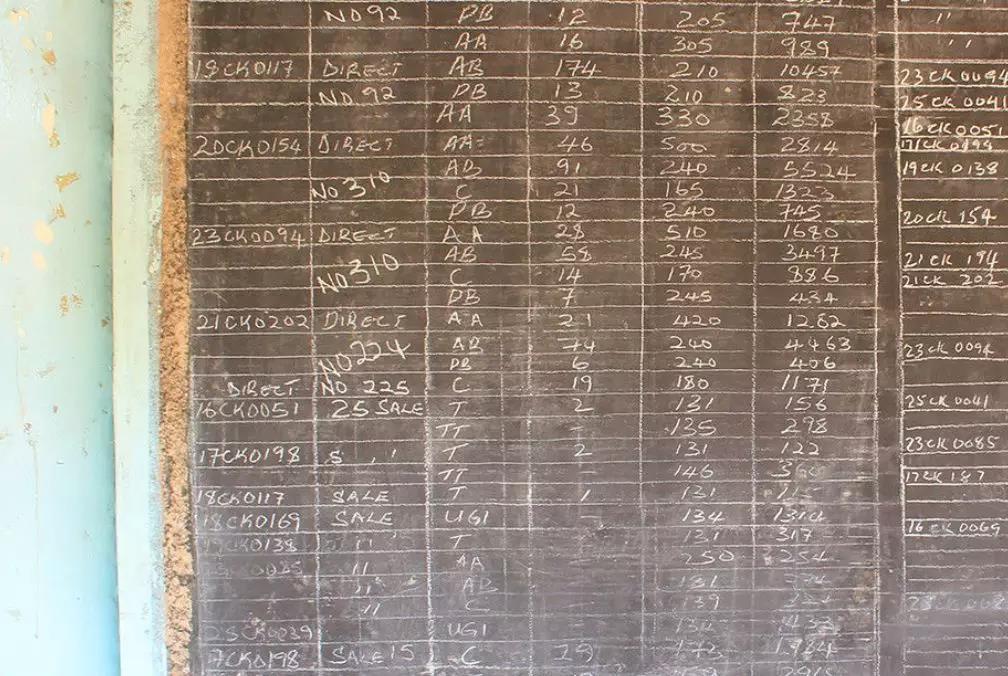 NO 92 PB 12 205 747 "
AA 16 305 989 "
18CK0117 DIRECT AB 174 210 10457 23CK009
NO.92 PB 13 210 823 25CK004
AA 39 330 2358 16CK0051
20CK0154 DIRECT AA= 46 500 2814 17CK0198
AB 91 240 5524 19CK0138
NO 310 C 21 165 1323
PB 12 240 745 20CK 154
23CK0094 DIRECT AA 28 510 1680
AB 58 245 3497 21CK 194
NO 310 C 14 170 886 21CK 202
PB 7 245 434
21CK0202 DIRECT AA 21 420 1262
NO 224 AB 74 240 4463 23CK 0094
PB 6 240 406
DIRECT NO 225 C 19 180 1171
16CK0051 25 SALE T 2 131 156 25CK 0041
TT - 135 298
17CK0198 S '' T 2 131 122 23CK 0085
TT - 146 17CK 187
18CK0117 SALE T 1 131
18CK0169 SALE UGI - 134 1314 16CK0069
19CK0138 '' T - 131 317
'' AA - 250 254
'' AB - 131
'' C - 139
25CK0039 UGI - 134
17CK0198 SALE 15 C 29 172 1984